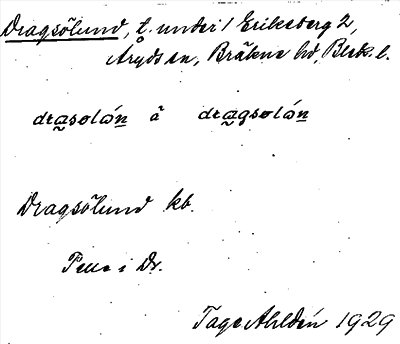 Dragsölund, t. under 1 Eriksberg 2,
Åryds sn, Bräkne hd, Blek. l.
drasolón å dragsolón
Dragsölund kb.
Pelle i Dr.
Tage Ahldén 1929